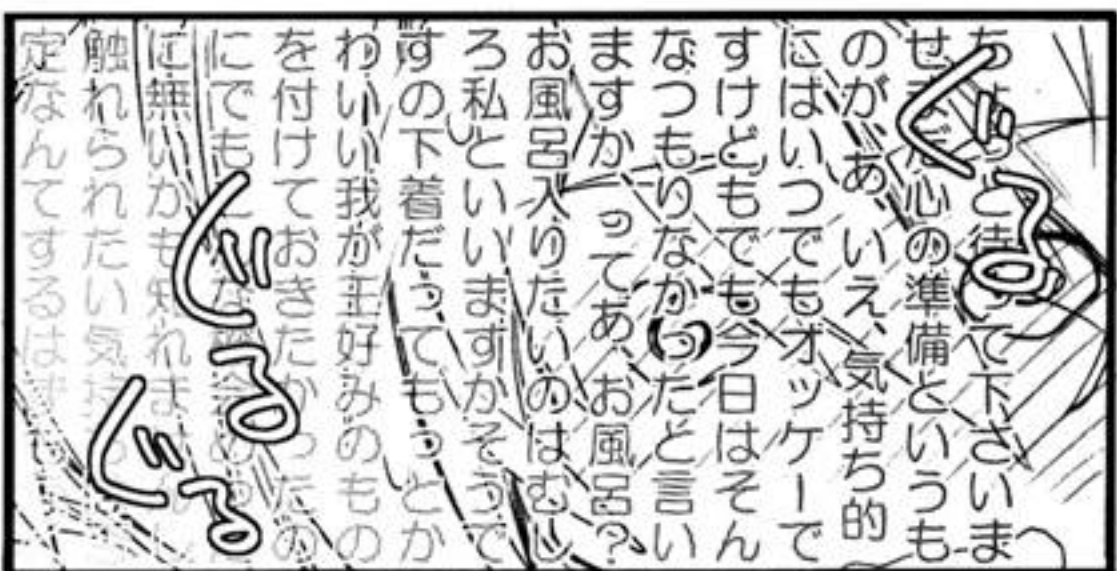 ちょっと待って下さいま
せまだ心の準備というも
のが、あ、いえ、気持ち的
にはいつでもオッケーで
すけどもでも今日はそん
なつもりなかったと言い
ますか ってあ、お風呂?
お風呂入りたいのはむし
ろ私といいますかそうで
すの下着だってもっとか
わいい我が王好みのもの
を付けておきたかったの
にでも
に無いかも知れま
触れられたい気持
定なんてするはず
ぐる
ぐる
ぐる